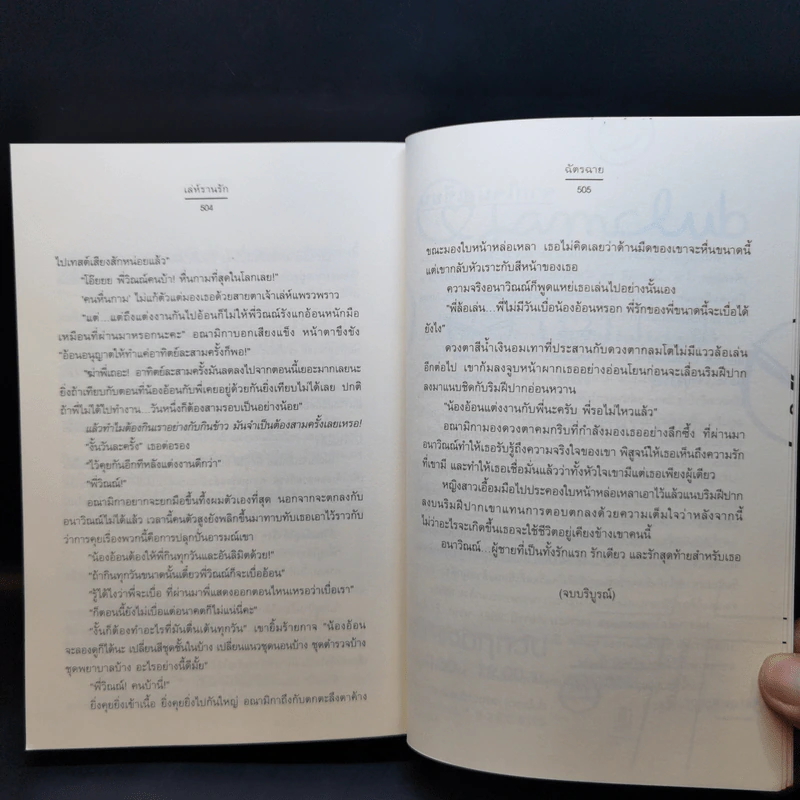 เล่ห์รานรัก
504
ไปเทสต์เสียงสักหน่อยแล้ว"
"โอ๊ยยย พี่วิณณ์คนบ้า! หื่นกามที่สุดในโลกเลย!"
'คนหื่นกาม' ไม่แก้ตัวแต่มองเธอด้วยสายตาเจ้าเล่ห์แพรวพราว
"แต่...แต่ถึงแต่งงานกันไปอ้อนก็ไม่ให้พี่วิณณ์รังแกอ้อนหนักมือ
เหมือนที่ผ่านมาหรอกนะคะ" อณามิกาบอกเสียงแข็ง หน้าตาขึงขัง
"อ้อนอนุญาตให้ทำแค่อาทิตย์ละสามครั้งก็พอ!"
"ฆ่าพี่เถอะ! อาทิตย์ละสามครั้งมันลดลงไปจากตอนนี้เยอะมากเลยนะ
ยิ่งถ้าเทียบกับตอนที่น้องอ้อนกับพี่เคยอยู่ด้วยกันยิ่งเทียบไม่ได้เลย ปกติ
ถ้าพี่ไม่ได้ไปทำงาน...วันหนึ่งก็ต้องสามรอบเป็นอย่างน้อย"
แล้วทำไมต้องกินเราอย่างกับกินข้าว มันจำเป็นต้องสามครั้งเลยเหรอ!
"งั้นวันละครั้ง" เธอต่อรอง
"ไว้คุยกันอีกทีหลังแต่งงานดีกว่า"
"พี่วิณณ์!"
อณามิกาอยากจะยกมือขึ้นทึ้งผมตัวเองที่สุด นอกจากจะตกลงกับ
อนาวิณณ์ไม่ได้แล้ว เวลานี้คนตัวสูงยังพลิกขึ้นมาทาบทับเธอเอาไว้ราวกับ
ว่าการคุยเรื่องพวกนี้คือการปลุกปั่นอารมณ์เขา
"น้องอ้อนต้องให้พี่กินทุกวันและอันลิมิตด้วย!"
"ถ้ากินทุกวันขนาดนั้นเดี๋ยวพี่วิณณ์ก็จะเบื่ออ้อน"
"รู้ได้ไงว่าพี่จะเบื่อ ที่ผ่านมาพี่แสดงออกตอนไหนเหรอว่าเบื่อเรา"
"ก็ตอนนี้ยังไม่เบื่อแต่อนาคตก็ไม่แน่นี่คะ"
"งั้นก็ต้องทำอะไรที่มันตื่นเต้นทุกวัน" เขายิ้มร้ายกาจ "น้องอ้อน
จะลองดูก็ได้นะ เปลี่ยนสีชุดชั้นในบ้าง เปลี่ยนแนวชุดนอนบ้าง ชุดตำรวจบ้าง
ชุดพยาบาลบ้าง อะไรอย่างนี้ดีมั้ย"
"พี่วิณณ์! คนบ้านี่!"
ยิ่งคุยยิ่งเข้าเนื้อ ยิ่งคุยยิ่งไปกันใหญ่ อณามิกาถึงกับตกตะลึงตาค้าง
ฉัตรฉาย
505
ขณะมองใบหน้าหล่อเหลา เธอไม่คิดเลยว่าด้านมืดของเขาจะหื่นขนาดนี้
แต่เขากลับหัวเราะกับสีหน้าของเธอ
ความจริงอนาวิณณ์ก็พูดแหย่เธอเล่นไปอย่างนั้นเอง
"พี่ล้อเล่น...พี่ไม่มีวันเบื่อน้องอ้อนหรอก พี่รักของพี่ขนาดนี้จะเบื่อได้
ยังไง"
ดวงตาสีน้ำเงินอมเทาที่ประสานกับดวงตากลมโตไม่มีแววล้อเล่น
อีกต่อไป เขาก้มลงจูบหน้าผากเธออย่างอ่อนโยนก่อนจะเลื่อนริมฝีปาก
ลงมาแนบชิดกับริมฝีปากอ่อนหวาน
"น้องอ้อนแต่งงานกับพี่นะครับ พี่รอไม่ไหวแล้ว"
อณามิกามองดวงตาคมกริบที่กำลังมองเธออย่างลึกซึ้ง ที่ผ่านมา
อนาวิณณ์ทำให้เธอรับรู้ถึงความจริงใจของเขา พิสูจน์ให้เธอเห็นถึงความรัก
ที่เขามี และทำให้เธอเชื่อมั่นแล้วว่าทั้งหัวใจเขามีแต่เธอเพียงผู้เดียว
หญิงสาวเอื้อมมือไปประคองใบหน้าหล่อเหลาเอาไว้แล้วแนบริมฝีปาก
ลงบนริมฝีปากเขาแทนการตอบตกลงด้วยความเต็มใจว่าหลังจากนี้
ไม่ว่าอะไรจะเกิดขึ้นเธอจะใช้ชีวิตอยู่เคียงข้างเขาคนนี้
อนาวิณณ์...ผู้ชายที่เป็นทั้งรักแรก รักเดียว และรักสุดท้ายสำหรับเธอ
(จบบริบูรณ์)